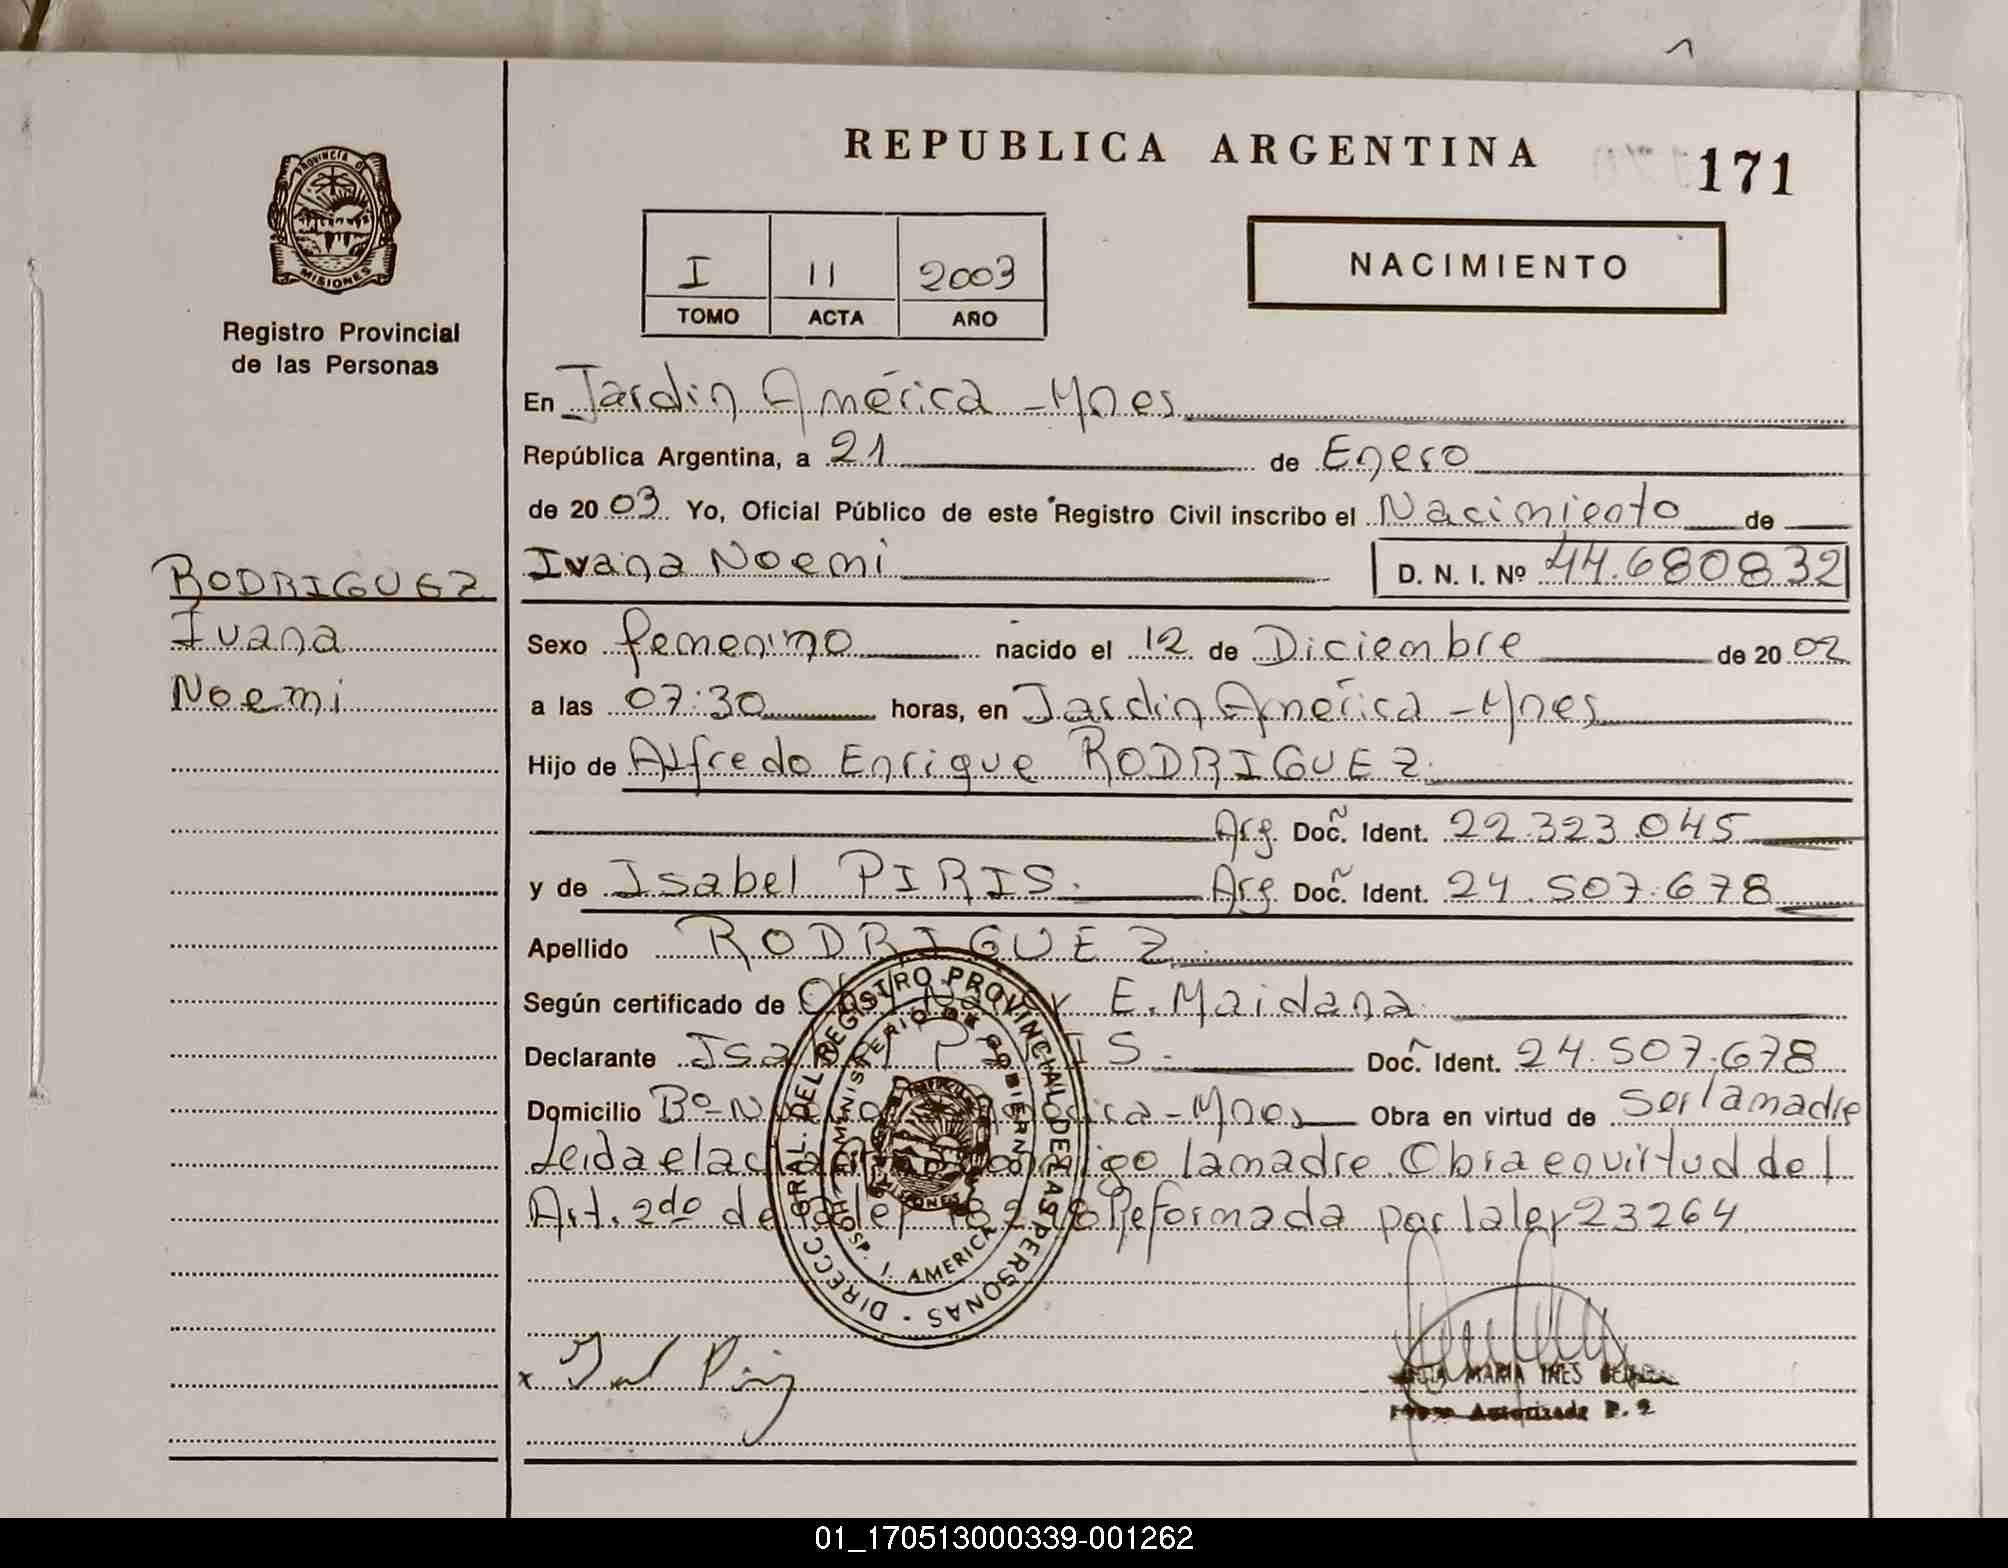 REPUBLICA ARGENTINA
171
PROVINCIA DE
MISIONES
Registro Provincial
de las Personas
I 11 2003
TOMO ACTA AÑO
NACIMIENTO
En Jardin América - Mnes
República Argentina, a 21 de Enero
de 2003 Yo, Oficial Público de este Registro Civil inscribo el Nacimiento de
Ivana Noemi D. N. I. Nº 44.680832
RODRIGUEZ
Ivana
Noemi
Sexo femenino nacido el 12 de Diciembre de 2002
a las 07:30 horas, en Jardin América - Mnes
Hijo de Alfredo Enrique RODRIGUEZ
Arg. Doc. Ident. 22.323.045
y de Isabel PIRIS. Arg. Doc. Ident. 24.507.678
Apellido RODRIGUEZ
Según certificado de E. Maidana
Declarante Isabel PIRIS. Doc. Ident. 24.507.678
Domicilio Bº- América - Mnes Obra en virtud de ser la madre
Leida el acta conmigo la madre. Obra en virtud del
Art. 2do de la ley 18248 Reformada por la ley 23264
DIRECC. GRAL. DEL REGISTRO PROVINCIAL DE LAS PERSONAS -
MINISTERIO DE GOBIERNO
HOSP. J. AMERICA
MISIONES
x
MARIA INES
Autorizada P. 2
01_170513000339-001262